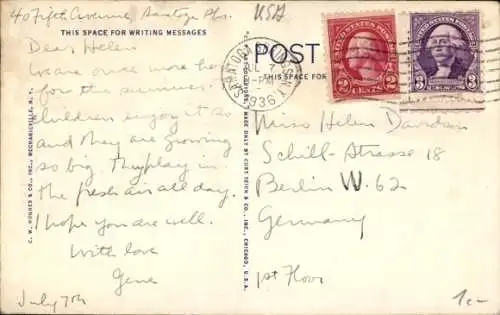 40 Fifth Avenue, Saratoga Spa.
USA
THIS SPACE FOR WRITING MESSAGES
Dear Helen
We are once more here
for the summer.
Children enjoy it so
and they are growing
so big. They play in
the fresh air all day.
I hope you are well.
With love
Gene
July 7th
C. W. HUGHES & CO., INC., MECHANICVILLE, N. Y.
MADE ONLY BY CURT TEICH & CO., INC., CHICAGO, U.S.A.
POST
THIS SPACE FOR
SARATOGA SPRINGS N.Y.
JUL 7
PM
1936
UNITED STATES POSTAGE
2 CENTS 2
3 3
Miss Helen Davidson
Schill-Strasse 18
Berlin W. 62
Germany
1st Floor
1.-